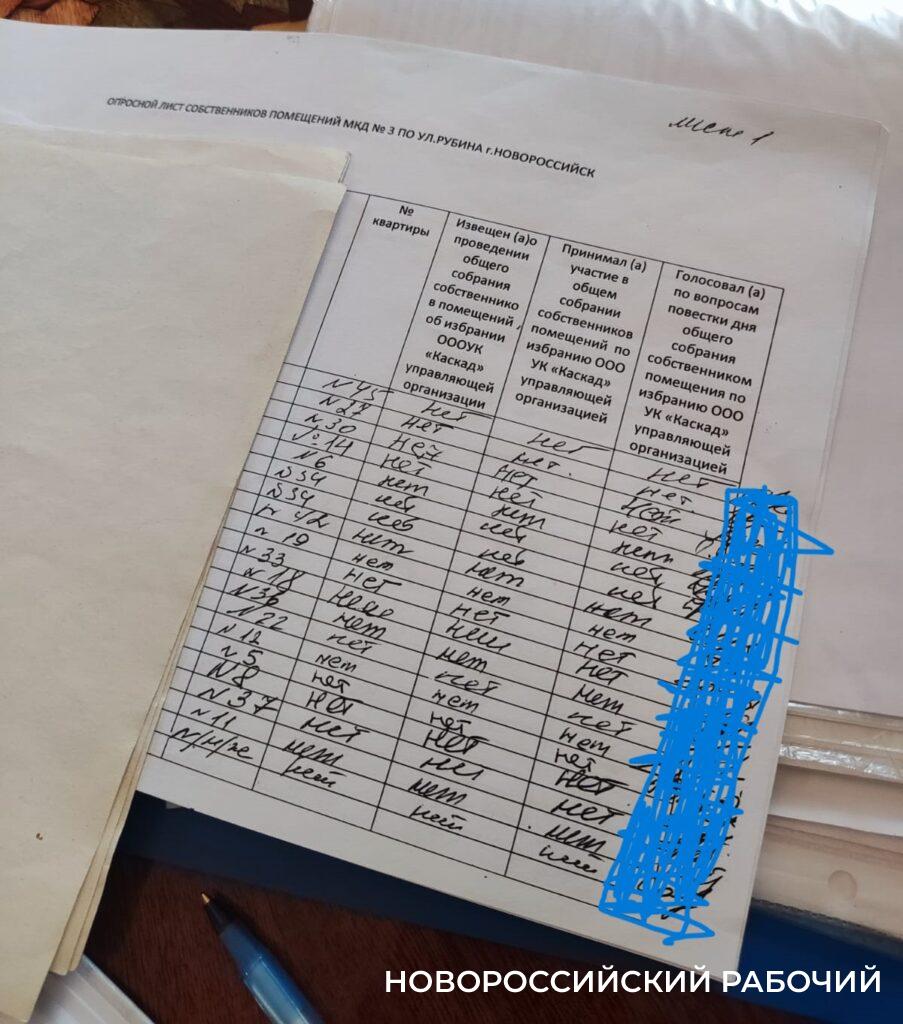 лист 1
ОПРОСНОЙ ЛИСТ СОБСТВЕННИКОВ ПОМЕЩЕНИЙ МКД № 3 ПО УЛ.РУБИНА г.НОВОРОССИЙСК
№
квартиры
Извещен (а)о
проведении
общего
собрания
собственнико
в помещений ,
об избрании
ОООУК
«Каскад»
управляющей
организации
Принимал (а)
участие в
общем
собрании
собственников
помещений по
избранию ООО
УК «Каскад»
управляющей
организацией
Голосовал (а)
по вопросам
повестки дня
общего
собрания
собственником
помещения по
избранию ООО
УК «Каскад»
управляющей
организацией
N45 нет нет нет
N27 нет нет. нет.
N30 нет нет нет
№14 нет нет нет
N6 нет нет нет
N34 нет нет нет
N34 нет нет нет
нет нет нет
N 19 нет нет нет
N33 нет нет нет
N18 нет нет нет
N36 нет нет нет
N22 нет нет нет
N12 нет нет нет
N5 нет нет нет
N8 нет нет нет
N37 нет нет нет
N11 нет нет нет
нет нет нет
НОВОРОССИЙСКИЙ РАБОЧИЙ